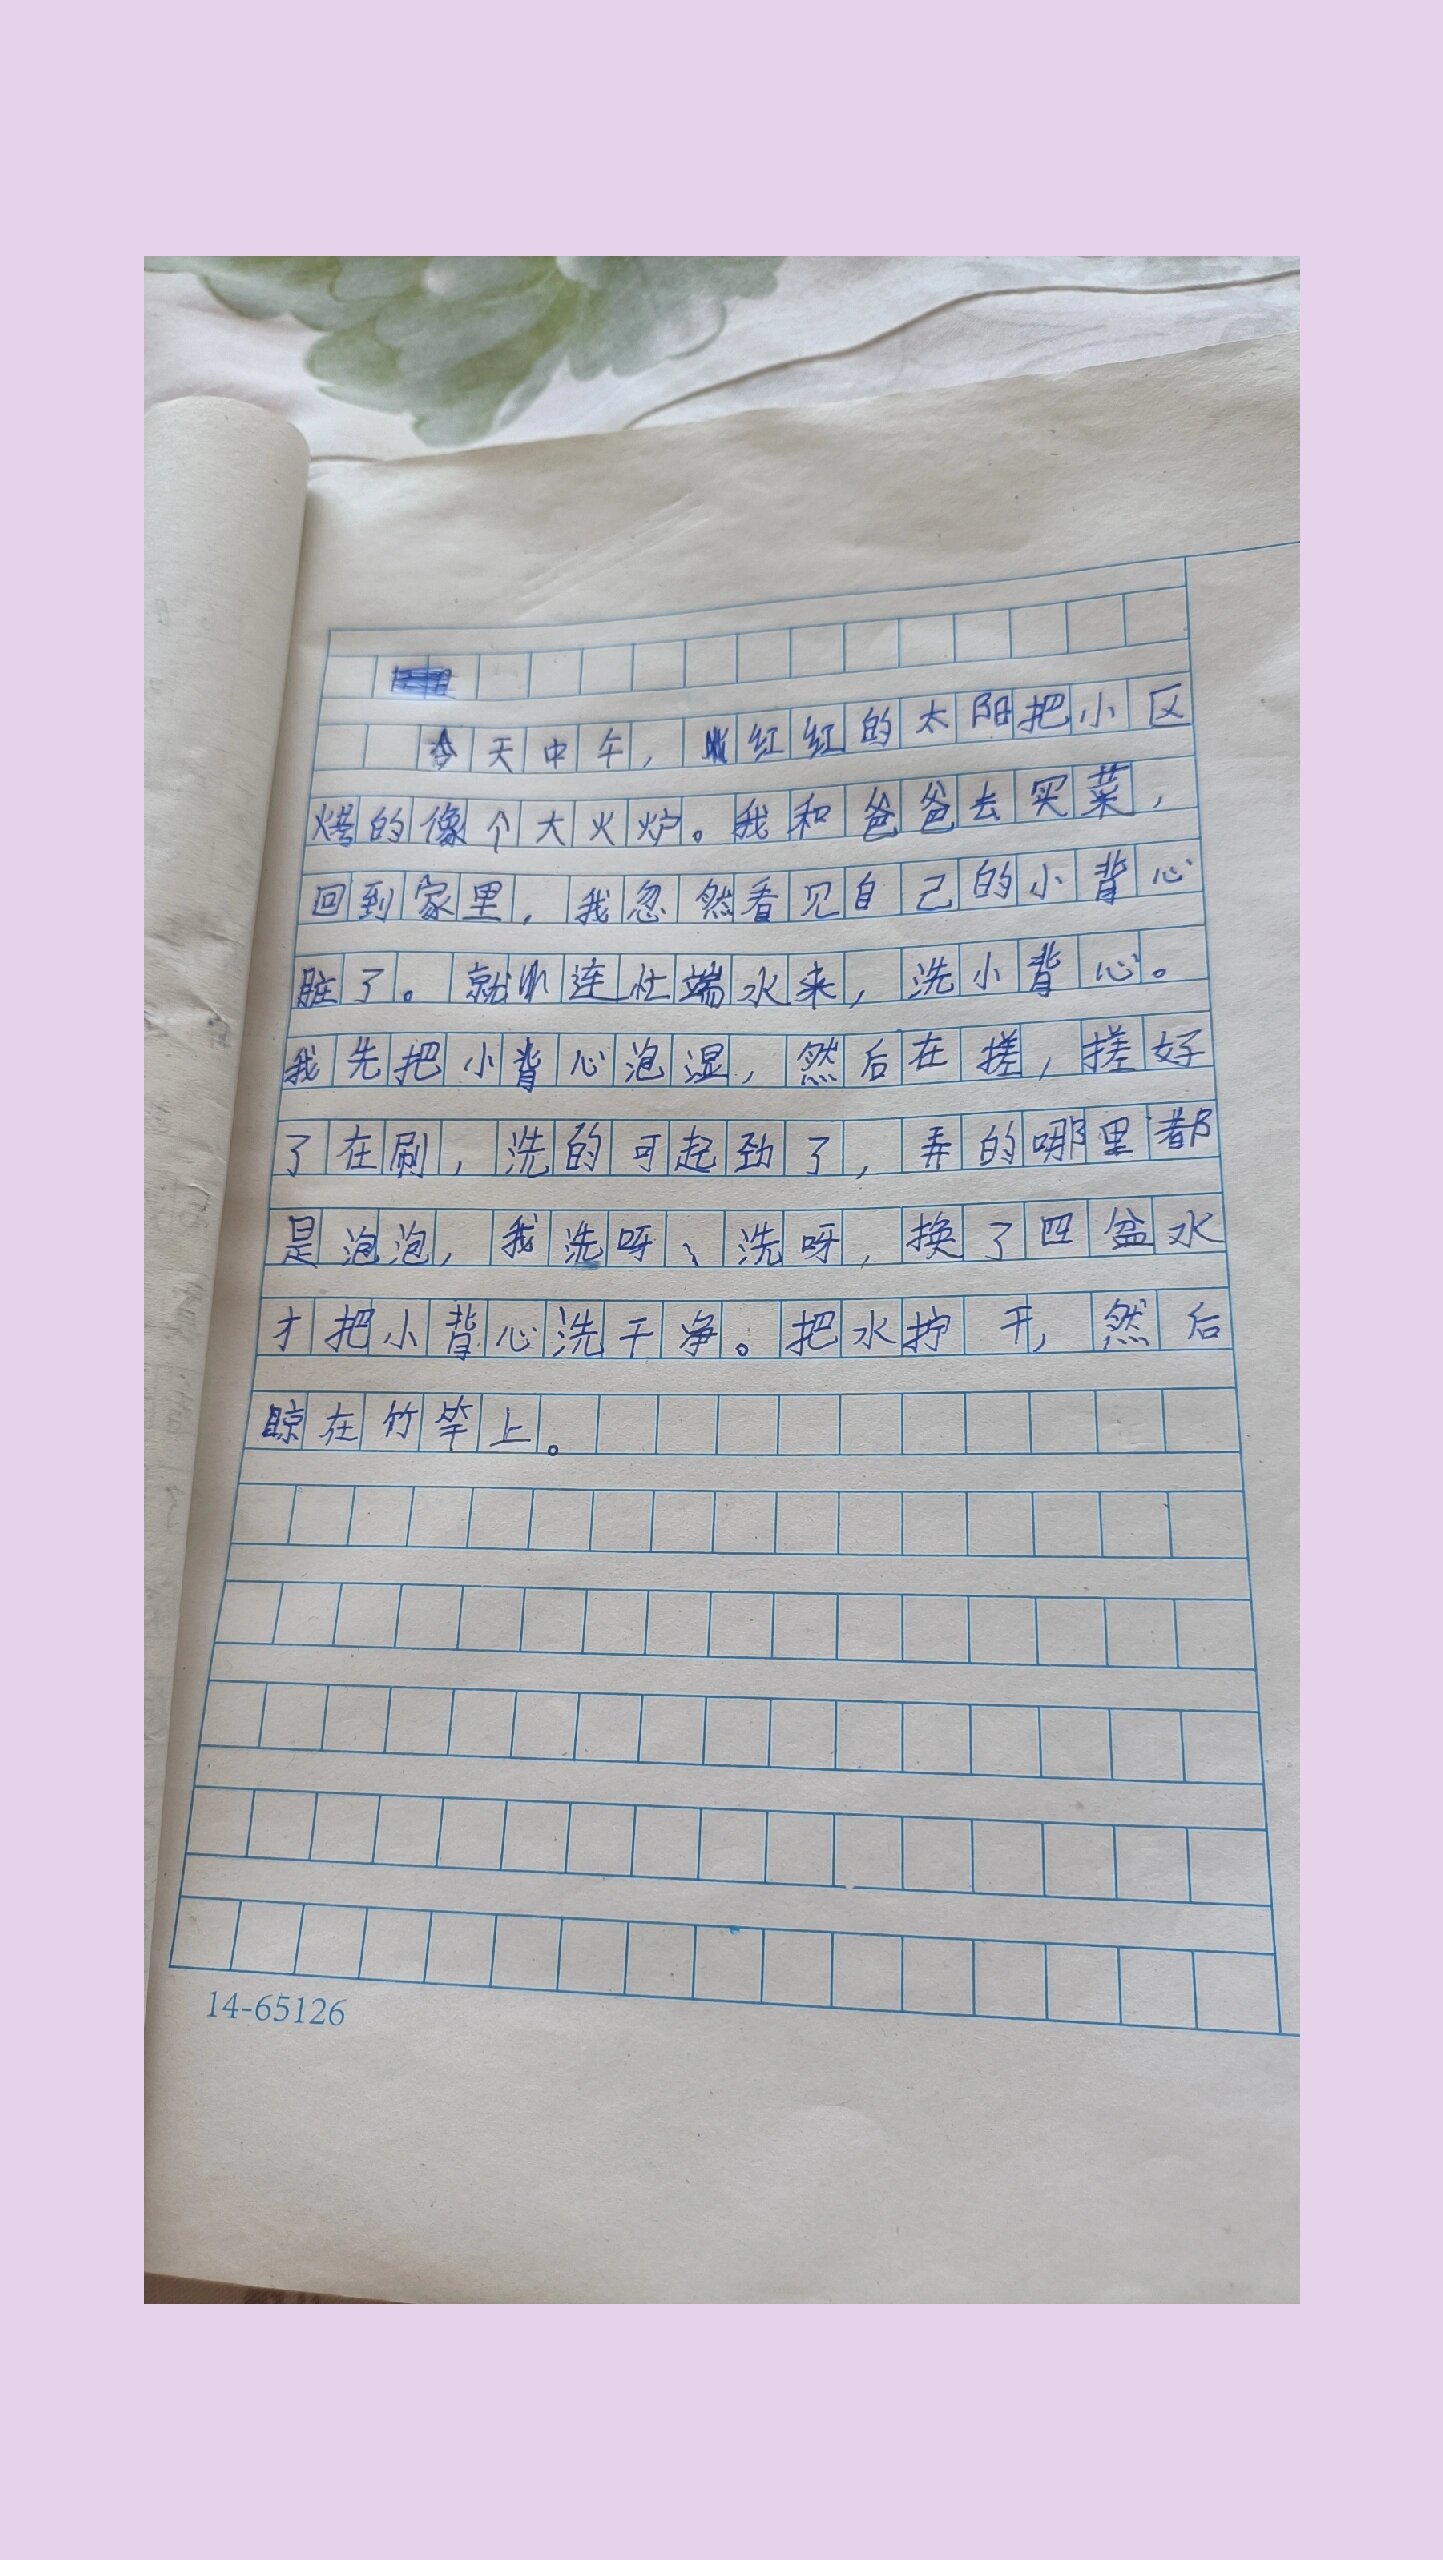 今天中午，红红的太阳把小区
烤的像个大火炉。我和爸爸去买菜，
回到家里，我忽然看见自己的小背心
脏了。就连忙端水来，洗小背心。
我先把小背心泡湿，然后在搓，搓好
了在刷，洗的可起劲了，弄的哪里都
是泡泡，我洗呀、洗呀，换了四盆水
才把小背心洗干净。把水拧干，然后
晾在竹竿上。
14-65126